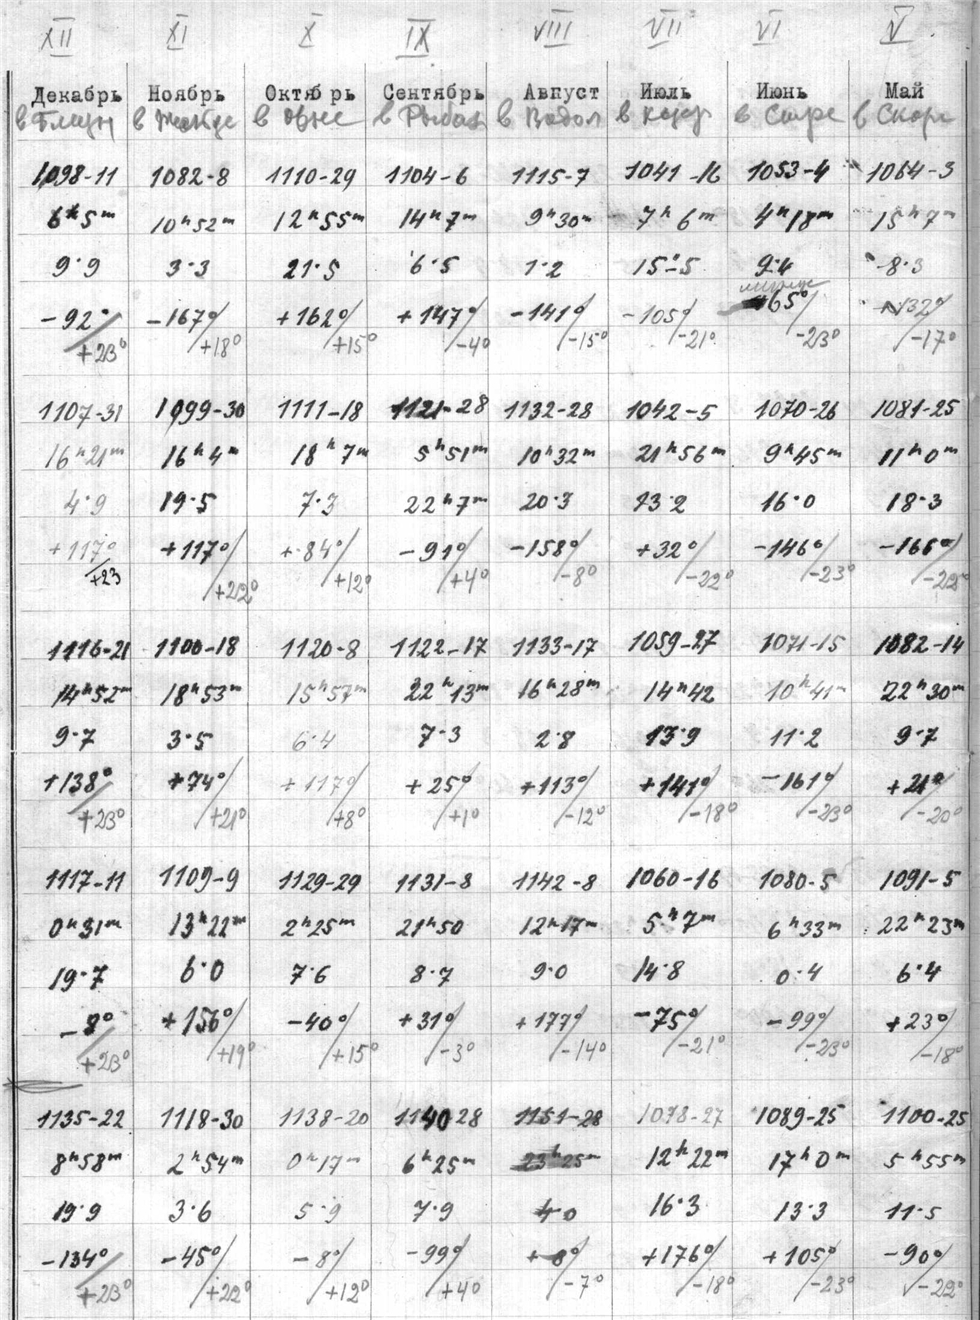 XII XI X IX VIII VII VI V
Декабрь Ноябрь Октябрь Сентябрь Август Июль Июнь Май
в Близн в в Овне в Рыбах в Водол в Козер в Стре в Скорп
1098-11 1082-8 1110-29 1104-6 1115-7 1041-16 1053-4 1064-3
6h5m 10h52m 12h55m 14h7m 9h30m 7h6m 4h18m 15h7m
9.9 3.3 21.5 6.5 1.2 15.5 9.4 8.3
-92° -167° +162° +147° -141° -105° 65° 132°
+23° +18° +15° -4° -15° -21° -23° -17°
1107-31 1099-30 1111-18 1121-28 1132-28 1042-5 1070-26 1081-25
16h21m 16h4m 18h7m 5h51m 10h32m 21h56m 9h45m 11h0m
4.9 19.5 7.3 22h7m 20.3 23.2 16.0 18.3
+117° +117° +84° -91° -158° +32° -146° -166°
+23 +22° +12° +4° -8° -22° -23° -22°
1116-21 1100-18 1120-8 1122-17 1133-17 1059-27 1071-15 1082-14
14h52m 18h53m 15h57m 22h13m 16h28m 14h42 10h41m 22h30m
9.7 3.5 6.4 7.3 2.8 13.9 11.2 9.7
+138° +74° +117° +25° +113° +141° -161° +21°
+23° +21° +8° +1° -12° -18° -23° -20°
1117-11 1109-9 1129-29 1131-8 1142-8 1060-16 1080-5 1091-5
0h31m 13h22m 2h25m 21h50 12h17m 5h7m 6h33m 22h23m
19.7 6.0 7.6 8.7 9.0 14.8 0.4 6.4
-8° +156° -40° +31° +177° -75° -99° +23°
+23° +19° +15° -3° -14° -21° -23° -18°
1135-22 1118-30 1138-20 1140 28 1151-28 1078-27 1089-25 1100-25
8h58m 2h54m 0h17m 6h25m 23h25m 12h22m 17h0m 5h55m
19.9 3.6 5.9 7.9 4.0 16.3 13.3 11.5
-134° -45° -8° -99° +8° +176° +105° -90°
+23° +22° +12° +4° -7° -18° -23° -22°